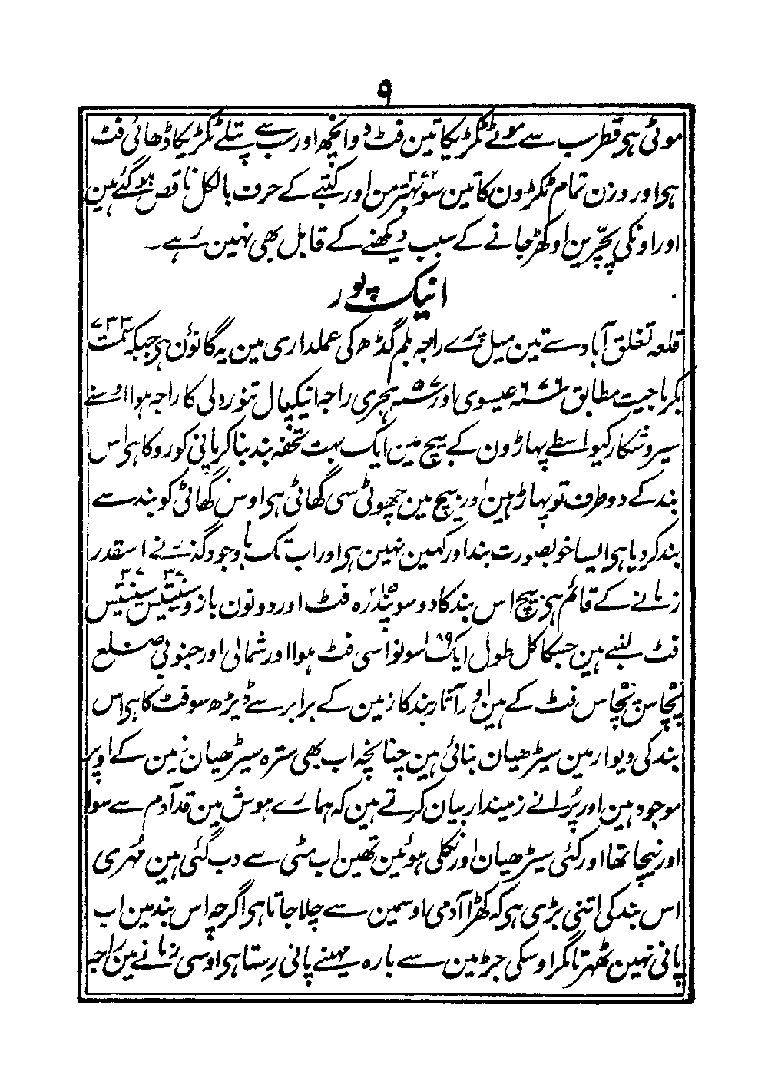 ۹
موٹی ہی قطر سب سے موٹے ٹکڑیکا تین فٹ دو انچھ اور سب سے پتلے ٹکڑیکا ڈھائی فٹ
ہی اور وزن تمام ٹکڑون کا تین سو بہتر من اور کتبے کے حرف بالکل ناقص ہو گئے ہین
اور اونکی پچرین اوکھڑ جانے کے سبب دیکھنے کے قابل بھی نہین رہے۔
انیک پور
قلعہ تغلق آباد سے تین میل پرے راجہ بلم گڈھ کی عملداری مین یہ گانون ہی جبکہ سمت ۷۳۳
بکرماجیت مطابق ۶۷۶ عیسوی اور ۵۷ ہجری راجہ انیکپال تنور دلی کا راجہ ہوا اوسنے
سیر و شکار کیواسطے پہاڑون کے بیچ مین ایک بہت تحفہ بند بنا کر پانی کو روکا ہی اس
بند کے دو طرف تو پہاڑ ہین اور بیچ مین چھوٹی سی گھاٹی ہی اوس گھاٹی کو بند سے
بند کر دیا ہی ایسا خوبصورت بند اور کہین نہین ہی اور اب تک باوجود گذرنے اسقدر
زمانے کے قائم ہی بیچ اس بند کا دو سو پندرہ فٹ اور دونون بازو سینتیس سینتیس
فٹ لنبے ہین جسکا کل طول ایک سو نواسی فٹ ہوا اور شمالی اور جنوبی ضلع
پچاس پچاس فٹ کے ہین اور آثار بند کا زمین کے برابر سے ڈیڑھ سو فٹ کا ہی اس
بند کی دیوار مین سیڑھیان بنائی ہین چنانچہ اب بھی سترہ سیڑھیان زمین کے اوپر
موجود ہین اور پرانے زمیندار بیان کرتے ہین کہ ہمارے ہوش مین قد آدم سے سوا
اور نیچا تھا اور کئی سیڑھیان اور نکلی ہوئین تھین اب مٹی سے دب گئی ہین مہری
اس بند کی اتنی بڑی ہی کہ کھڑا آدمی اوسمین سے چلا جاتا ہی اگرچہ اس بند مین اب
پانی نہین ٹھہرتا مگر اوسکی جڑ مین سے بارہ مہینے پانی رستا ہی اوسی زمانے مین